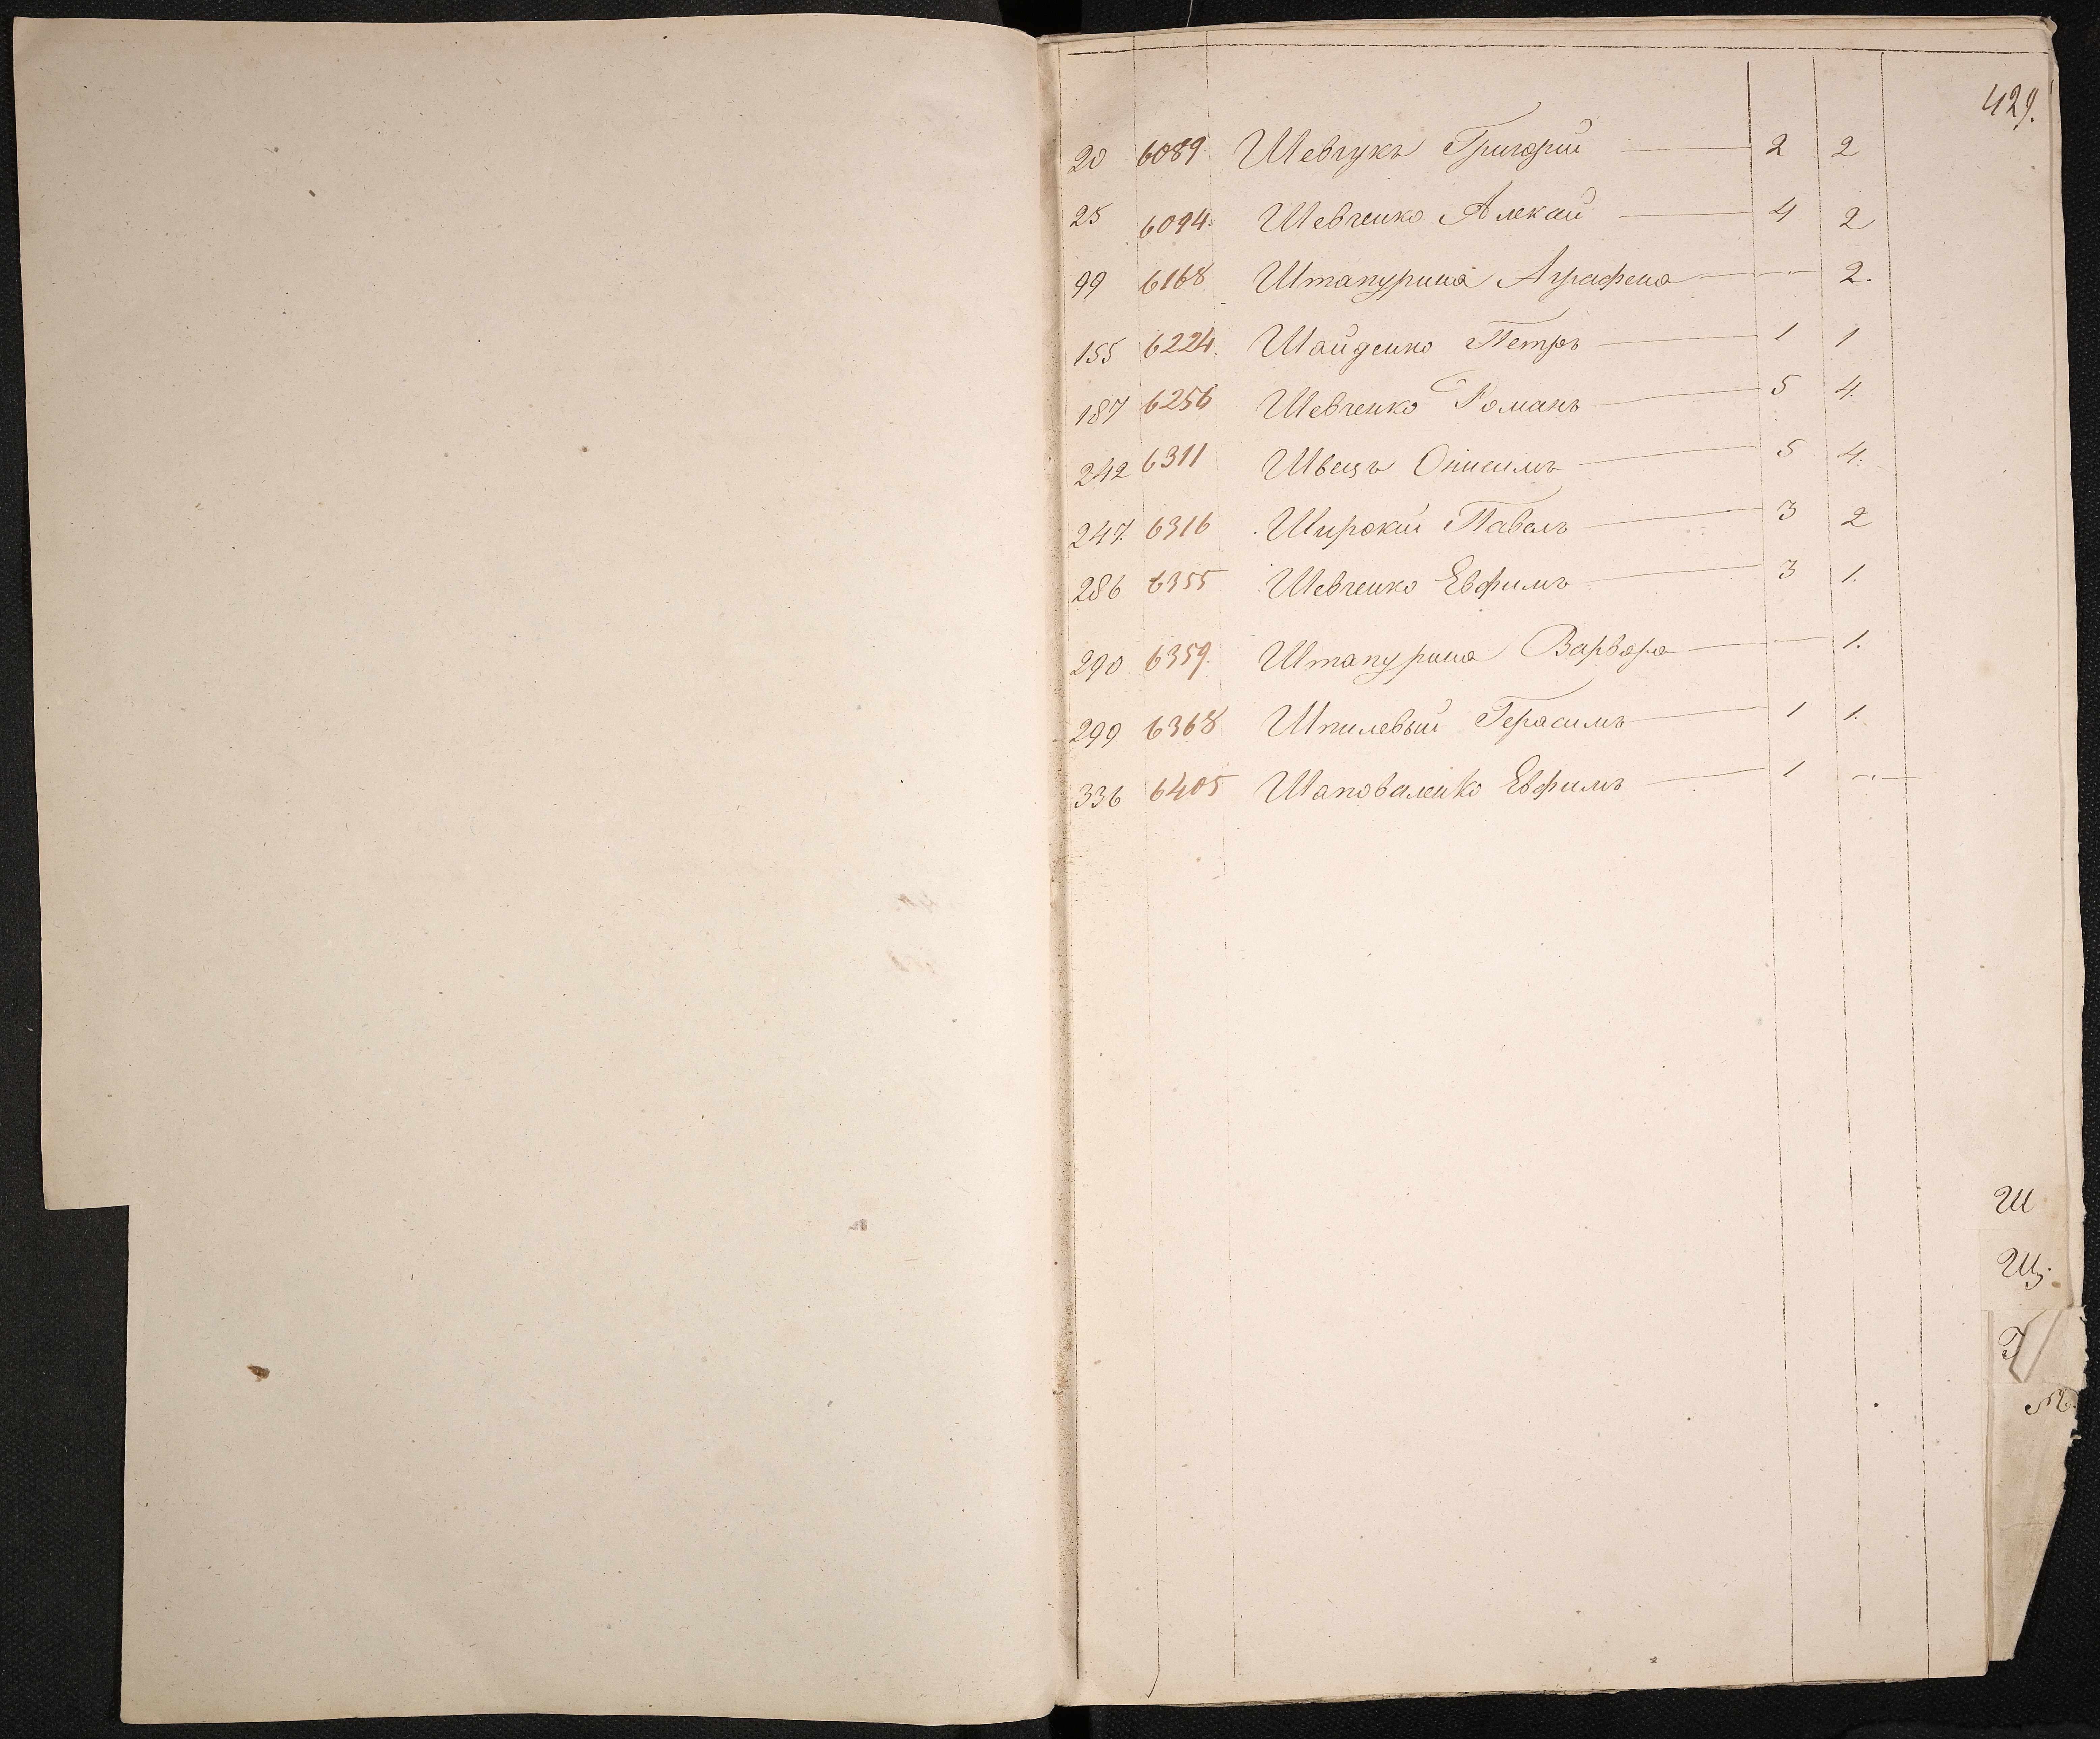 429.
20 6089. Шевчукъ Григорій — 2 2
25 6094. Шевченко Алексѣй — 4 2
99 6168 Штапурина Аграфена — " — 2.
155 6224. Шайденко Петръ — 1 1
187 6256 Шевченко Романъ — 5 4.
242 6311 Швецъ Онисимъ — 5 4.
247. 6316 Широкій Павелъ — 3 2
286 6355 Шевченко Евфимъ — 3 1.
290. 6359. Штапурина Варвара — 1.
299 6368 Шпилевый Герасимъ — 1 1.
336 6405 Шаповаленко Евфимъ — 1 —
Ш
Щ.